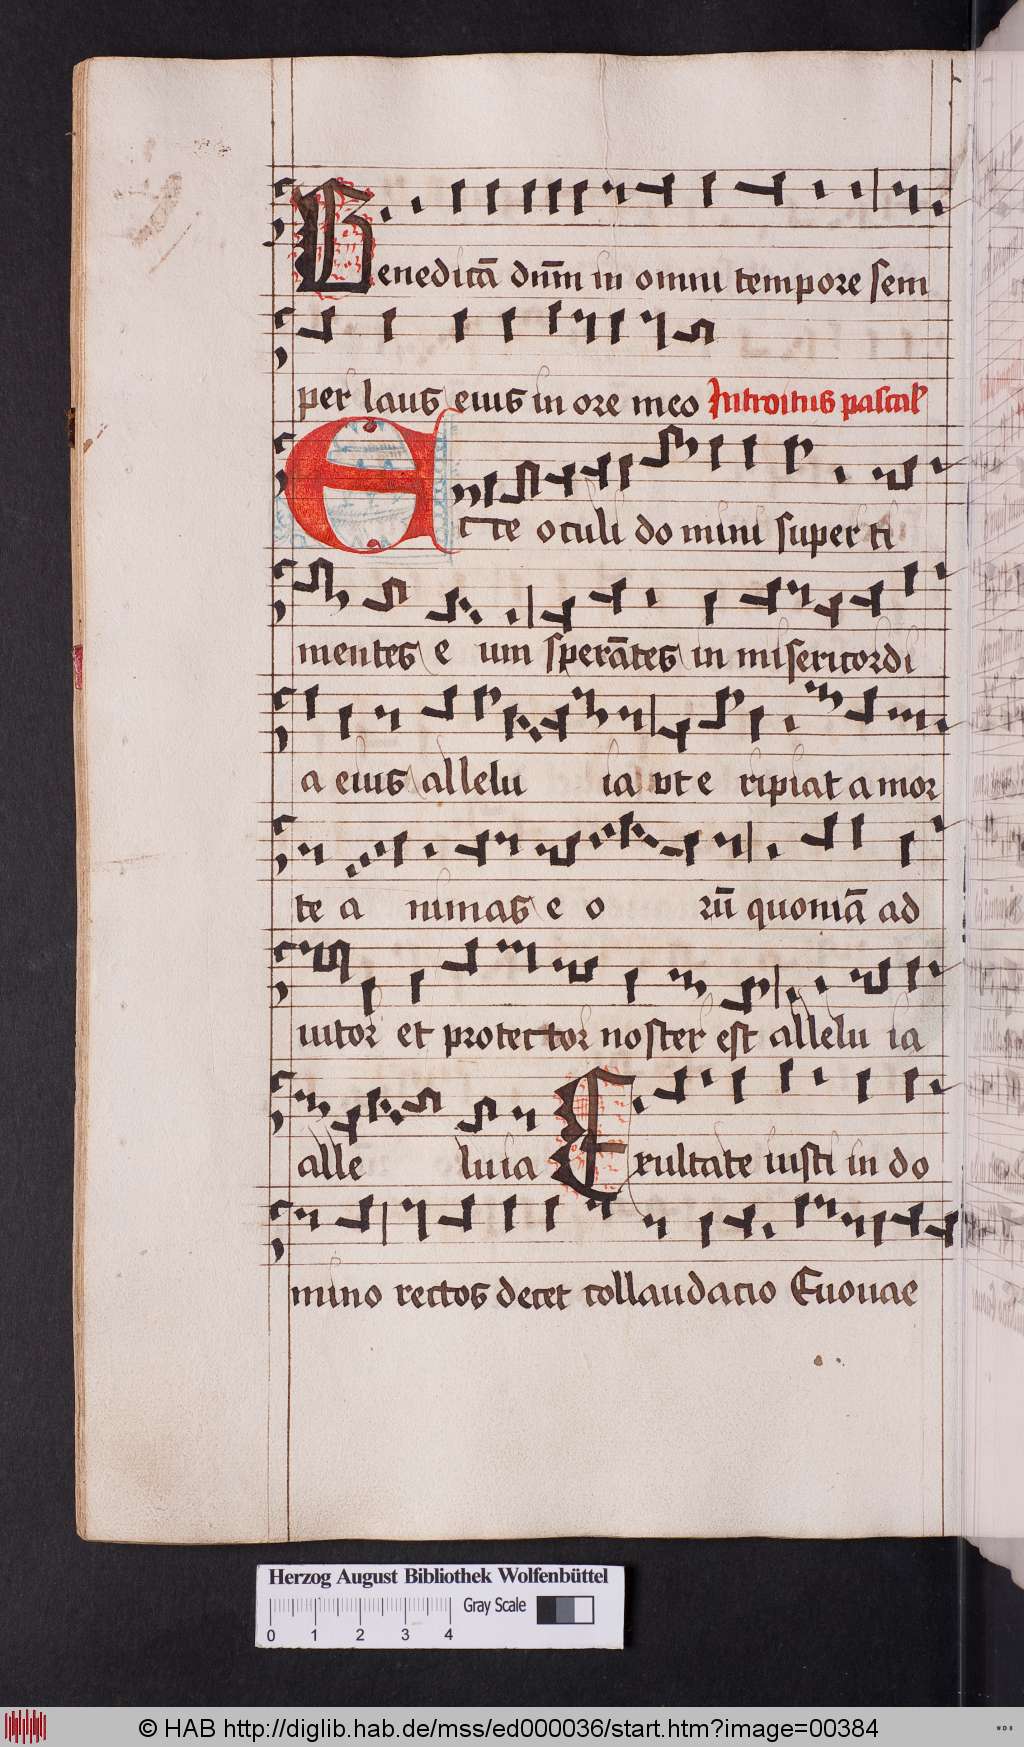 Benedicā dn̄m in omni tempore sem
per laus eius in ore meo Introitus pascal
Ecce oculi domini super ti
mentes e um sperātes in misericordi
a eius allelu ia vt e ripiat a mor
te a nimas e o rū quoniā ad
iutor et protector noster est allelu ia
alle luia Exultate iusti in do
mino rectos decet collaudacio Euouae
Herzog August Bibliothek Wolfenbüttel
Gray Scale
0 1 2 3 4
© HAB http://diglib.hab.de/mss/ed000036/start.htm?image=00384